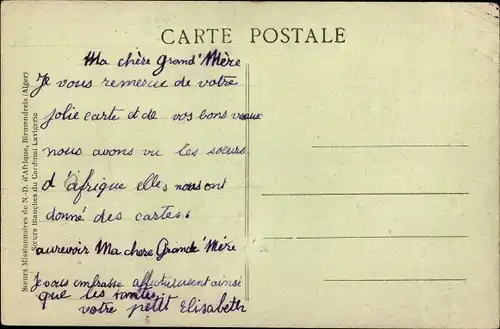 CARTE POSTALE
Sœurs Missionnaires de N.-D. d'Afrique, Birmandreis (Alger)
Sœurs Blanches du Cardinal Lavigerie
Ma chère Grand' Mère
Je vous remercie de votre
jolie carte et de vos bons vœux
nous avons vu les sœurs
d'afrique elles nous ont
donné des cartes.
au revoir Ma chere Grande Mère
Je vous embrasse ainsé
que les tantes
votre petit Elisabeth